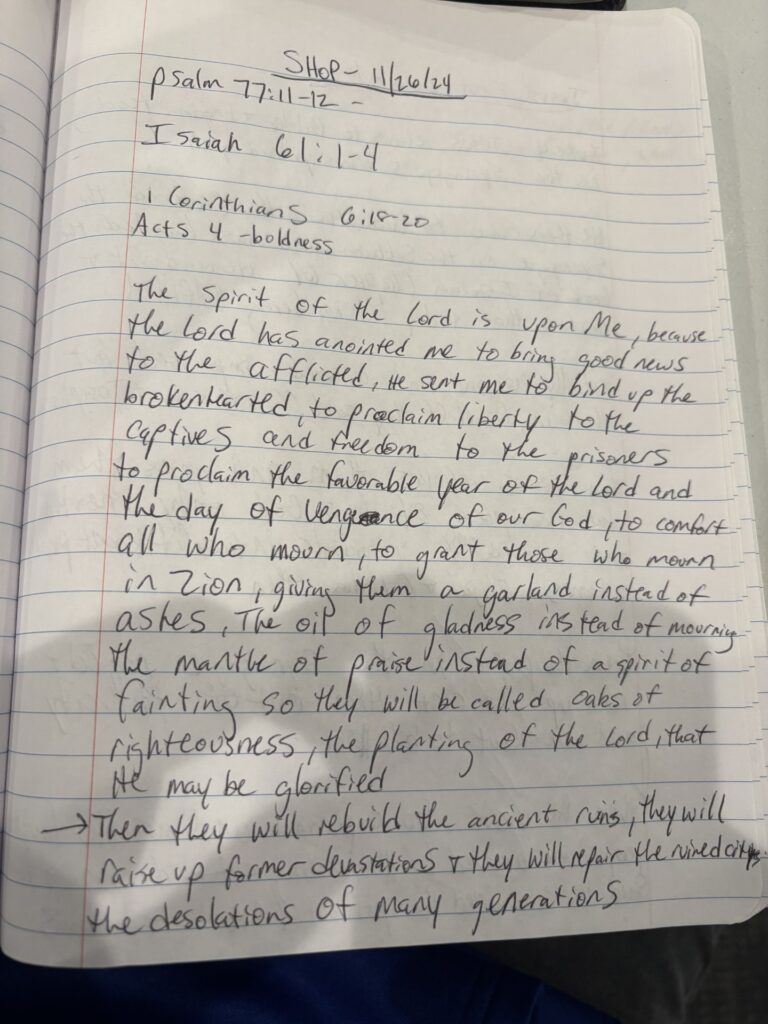 SHOP - 11/26/24
Psalm 77:11-12 -
Isaiah 61:1-4
1 Corinthians 6:18-20
Acts 4 - boldness
The Spirit of the Lord is upon Me, because
the Lord has anointed me to bring good news
to the afflicted, He sent me to bind up the
brokenhearted, to proclaim liberty to the
captives and freedom to the prisoners
to proclaim the favorable year of the Lord and
the day of vengeance of our God, to comfort
all who mourn, to grant those who mourn
in Zion, giving them a garland instead of
ashes, The oil of gladness instead of mourning
the mantle of praise instead of a spirit of
fainting so they will be called oaks of
righteousness, the planting of the Lord, that
He may be glorified
→ Then they will rebuild the ancient ruins, they will
raise up former devastations + they will repair the ruined cities
the desolations of many generations